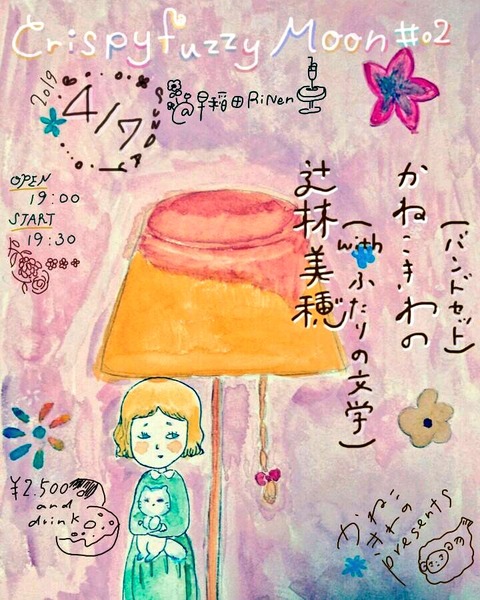 Crispyfuzzy Moon #02
2019
4/7
SUNDAY
@早稲田RiNen
OPEN
19:00
START
19:30
かねこきわの
(バンドセット)
辻林美穂
(withふたりの文学)
¥2.500
and
drink
かねこ
きわの
presents